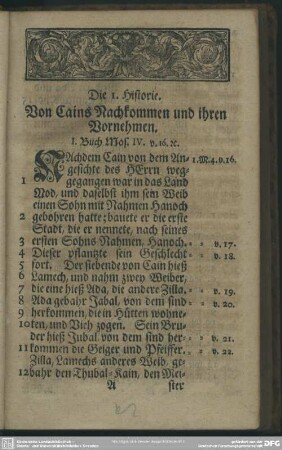 Die 1. Historie.
Von Cains Nachkommen und ihren
Vornehmen.
I. Buch Mos. IV. v. 16. ꝛc.
NAchdem Cain von dem An- 1.M.4.v.16.
gesichte des HErrn weg-
1 gegangen war in das Land
Nod, und daselbst ihm sein Weib
einen Sohn mit Nahmen Hanoch
2 gebohren hatte; bauete er die erste
Stadt, die er nennete, nach seines
3 ersten Sohns Nahmen, Hanoch. = = v. 17.
4 Dieser pflantzte sein Geschlecht = = v. 18.
5 fort. Der siebende von Cain hieß
6 Lamech, und nahm zwey Weiber,
7 die eine hieß Ada, die andere Zilla. = = v. 19.
8 Ada gebahr Jabal, von dem sind = = v. 20.
9 herkommen, die in Hütten wohne-
10 ten, und Vieh zogen. Sein Bru-
der hieß Jubal, von dem sind her- = = v. 21.
11 kommen die Geiger und Pfeiffer. = = v. 22.
Zilla, Lamechs anderes Weib, ge-
12 bahr den Thubal-Kain, den Mei-
A ster